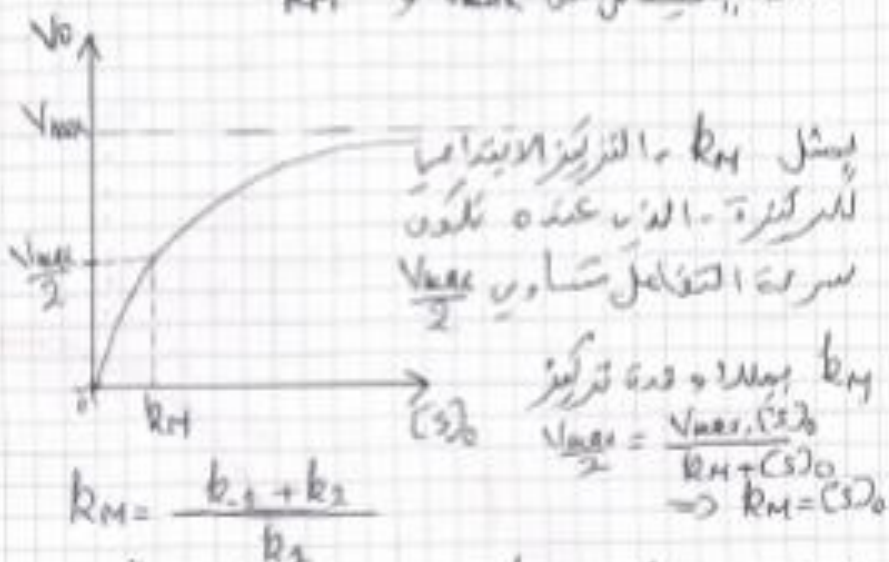 V₀
Vmax
Vmax/2
0
kM
(S)₀
يمثل kM التركيز الابتدائي
للركيزة الذي عنده تكون
سرعة التفاعل تساوي Vmax/2
kM يملك وحدة تركيز
Vmax/2 = Vmax.(S)₀ / kM+(S)₀
=> kM=(S)₀
kM = k₋₁ + k₂ / k₁